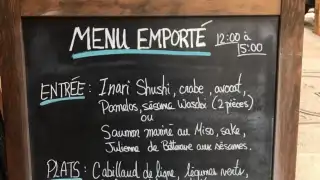 MENU EMPORTÉ
12:00 à
15:00
ENTRÉE : Inari Shushi, crabe, avocat,
Pomelos, sésame Wasabi (2 pièces)
ou
Saumon mariné au Miso, sake,
Julienne de Betterave aux sésames.
PLATS : Cabillaud de ligne, légumes verts,